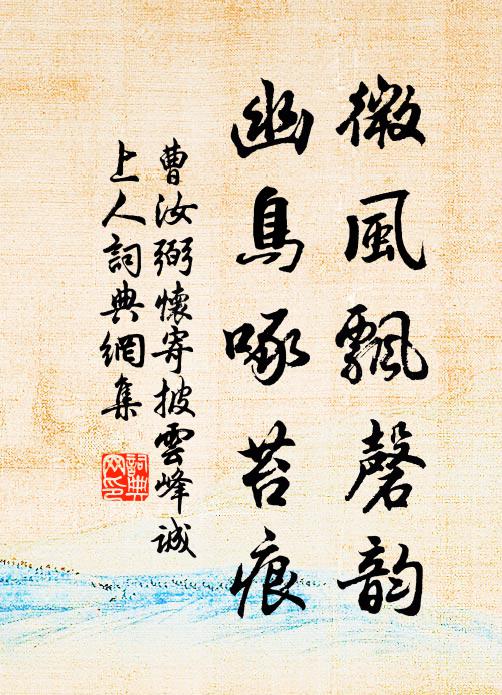 微風飄磬韵
幽鳥啄苔痕
曹汝弼懷寄披雲峰誠
上人詞典網集
詞典网印